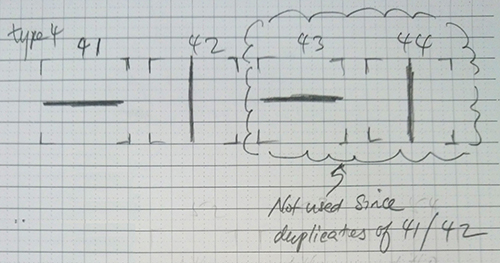 type 4
41 42 43 44
Not used since
duplicates of 41/42